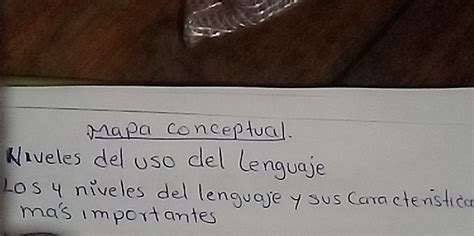 Mapa conceptual.
Niveles del uso del lenguaje
Los 4 niveles del lenguaje y sus característica
más importantes